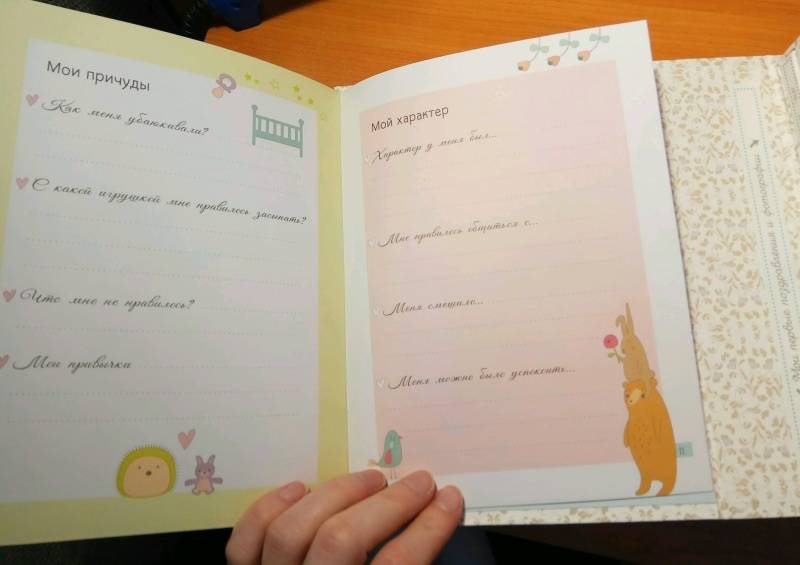 Мои причуды
Как меня убаюкивали?
С какой игрушкой мне нравилось засыпать?
Что мне не нравилось?
Мои привычки
Мой характер
Характер у меня был...
Мне нравилось общаться с...
Меня смешило...
Меня можно было успокоить...
11
Мои первые поздравления и фотографии